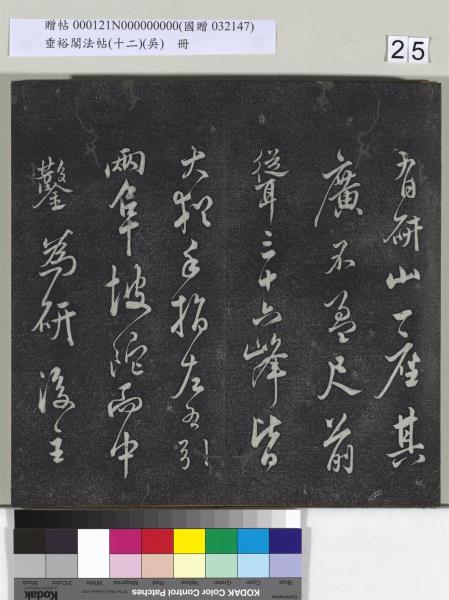 贈帖 000121N000000000(國贈 032147)
垂裕閣法帖(十二)(吳) 冊
25
有研山一座其
廣不盈尺前
聳三十六峰皆
大猶手指左右引
兩阜坡陀而中
鑿為研後主
Blue Cyan Green Yellow Red Magenta White 3/Color Black
KODAK Color Control Patches
Kodak